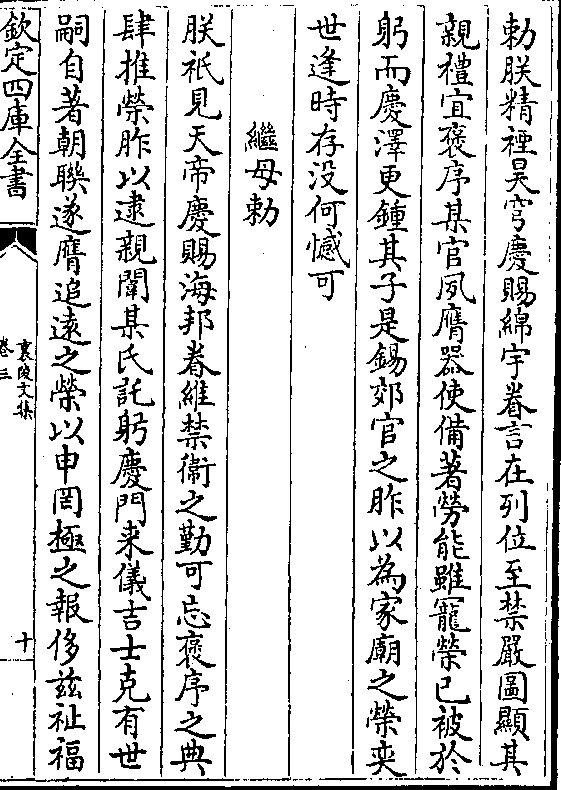 勅朕精禋昊穹慶賜綿宇眷言在列位至禁嚴圖顯其
親禮宜褒序某官夙膺器使備著勞能雖寵榮已被於
躬而慶澤更鍾其子是錫郊官之胙以為家廟之榮奕
世逢時存没何憾可
繼母勅
朕祇見天帝慶賜海邦眷維禁衞之勤可忘褒序之典
肆推榮胙以逮親闈某氏託躬慶門来儀吉士克有世
嗣自著朝聯遂膺追逺之榮以申罔極之報侈兹祉福
欽定四庫全書
襄陵文集
卷三
十